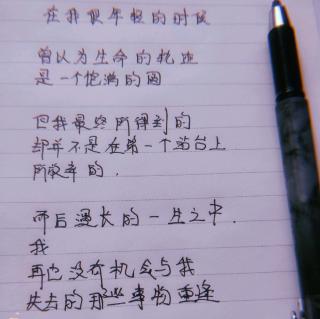 在我很年轻的时候
曾以为生命的轨迹
是一个饱满的圆
但我最终所得到的
却并不是在第一个站台上
所收率的.
而后漫长的一生之中.
我
再也没有机会与我
失去的那些事物重逢